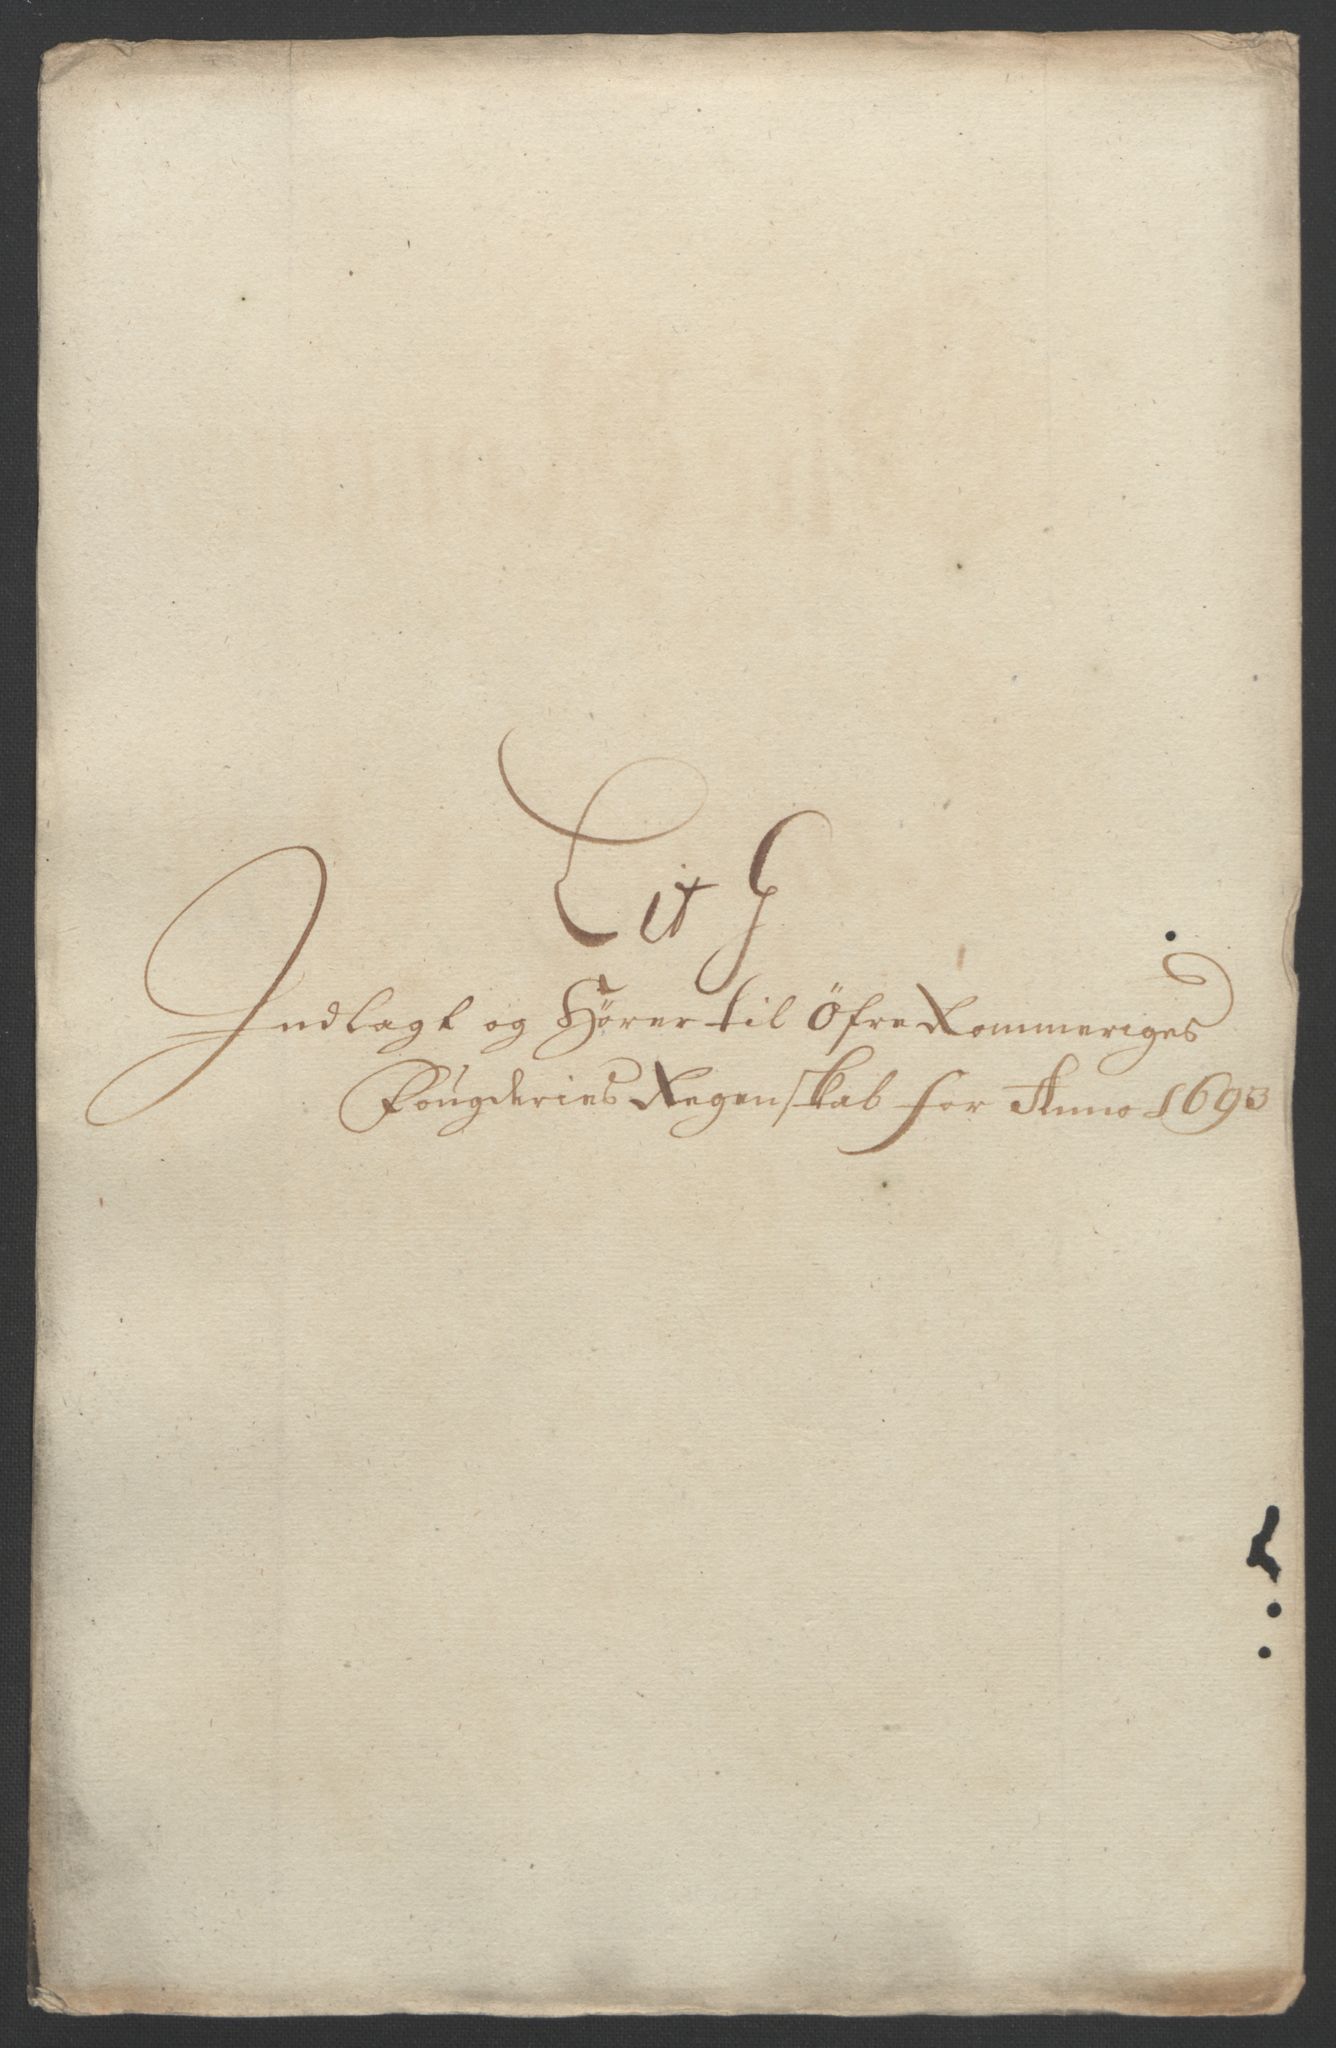 Lit G
Indlagt og Hörer til Öfre Rommeriges
Fougderies Regenskab for Anno 1693